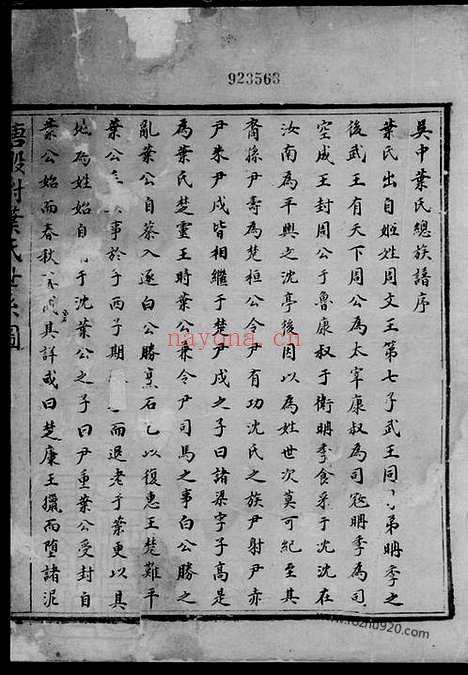 923568
吳中葉氏總族譜序
葉氏出自姬姓周文王第七子武王同弟聃季之
後武王有天下周公為太宰康叔為司寇聃季為司
空成王封周公于魯康叔于衛聃季食采于沈沈在
汝南為平輿之沈亭後因以為姓世次莫可紀至其
裔孫尹壽為楚桓公令尹有功沈氏之族尹射尹赤
尹朱尹戍皆相繼于楚尹戍之子曰諸梁字子高是
為葉氏楚靈王時葉公兼令尹司馬之事白公勝之
亂葉公自蔡入逐白公勝烹石乞以復惠王楚難平
葉公事於子西子期而退老于葉更以其
地為姓始自于沈葉公之子曰尹重葉公受封自
葉公始而春秋其詳或曰楚康王獵而墮諸泥
唐殿村葉氏世系圖
nayona.cn
www.fozhu920.com